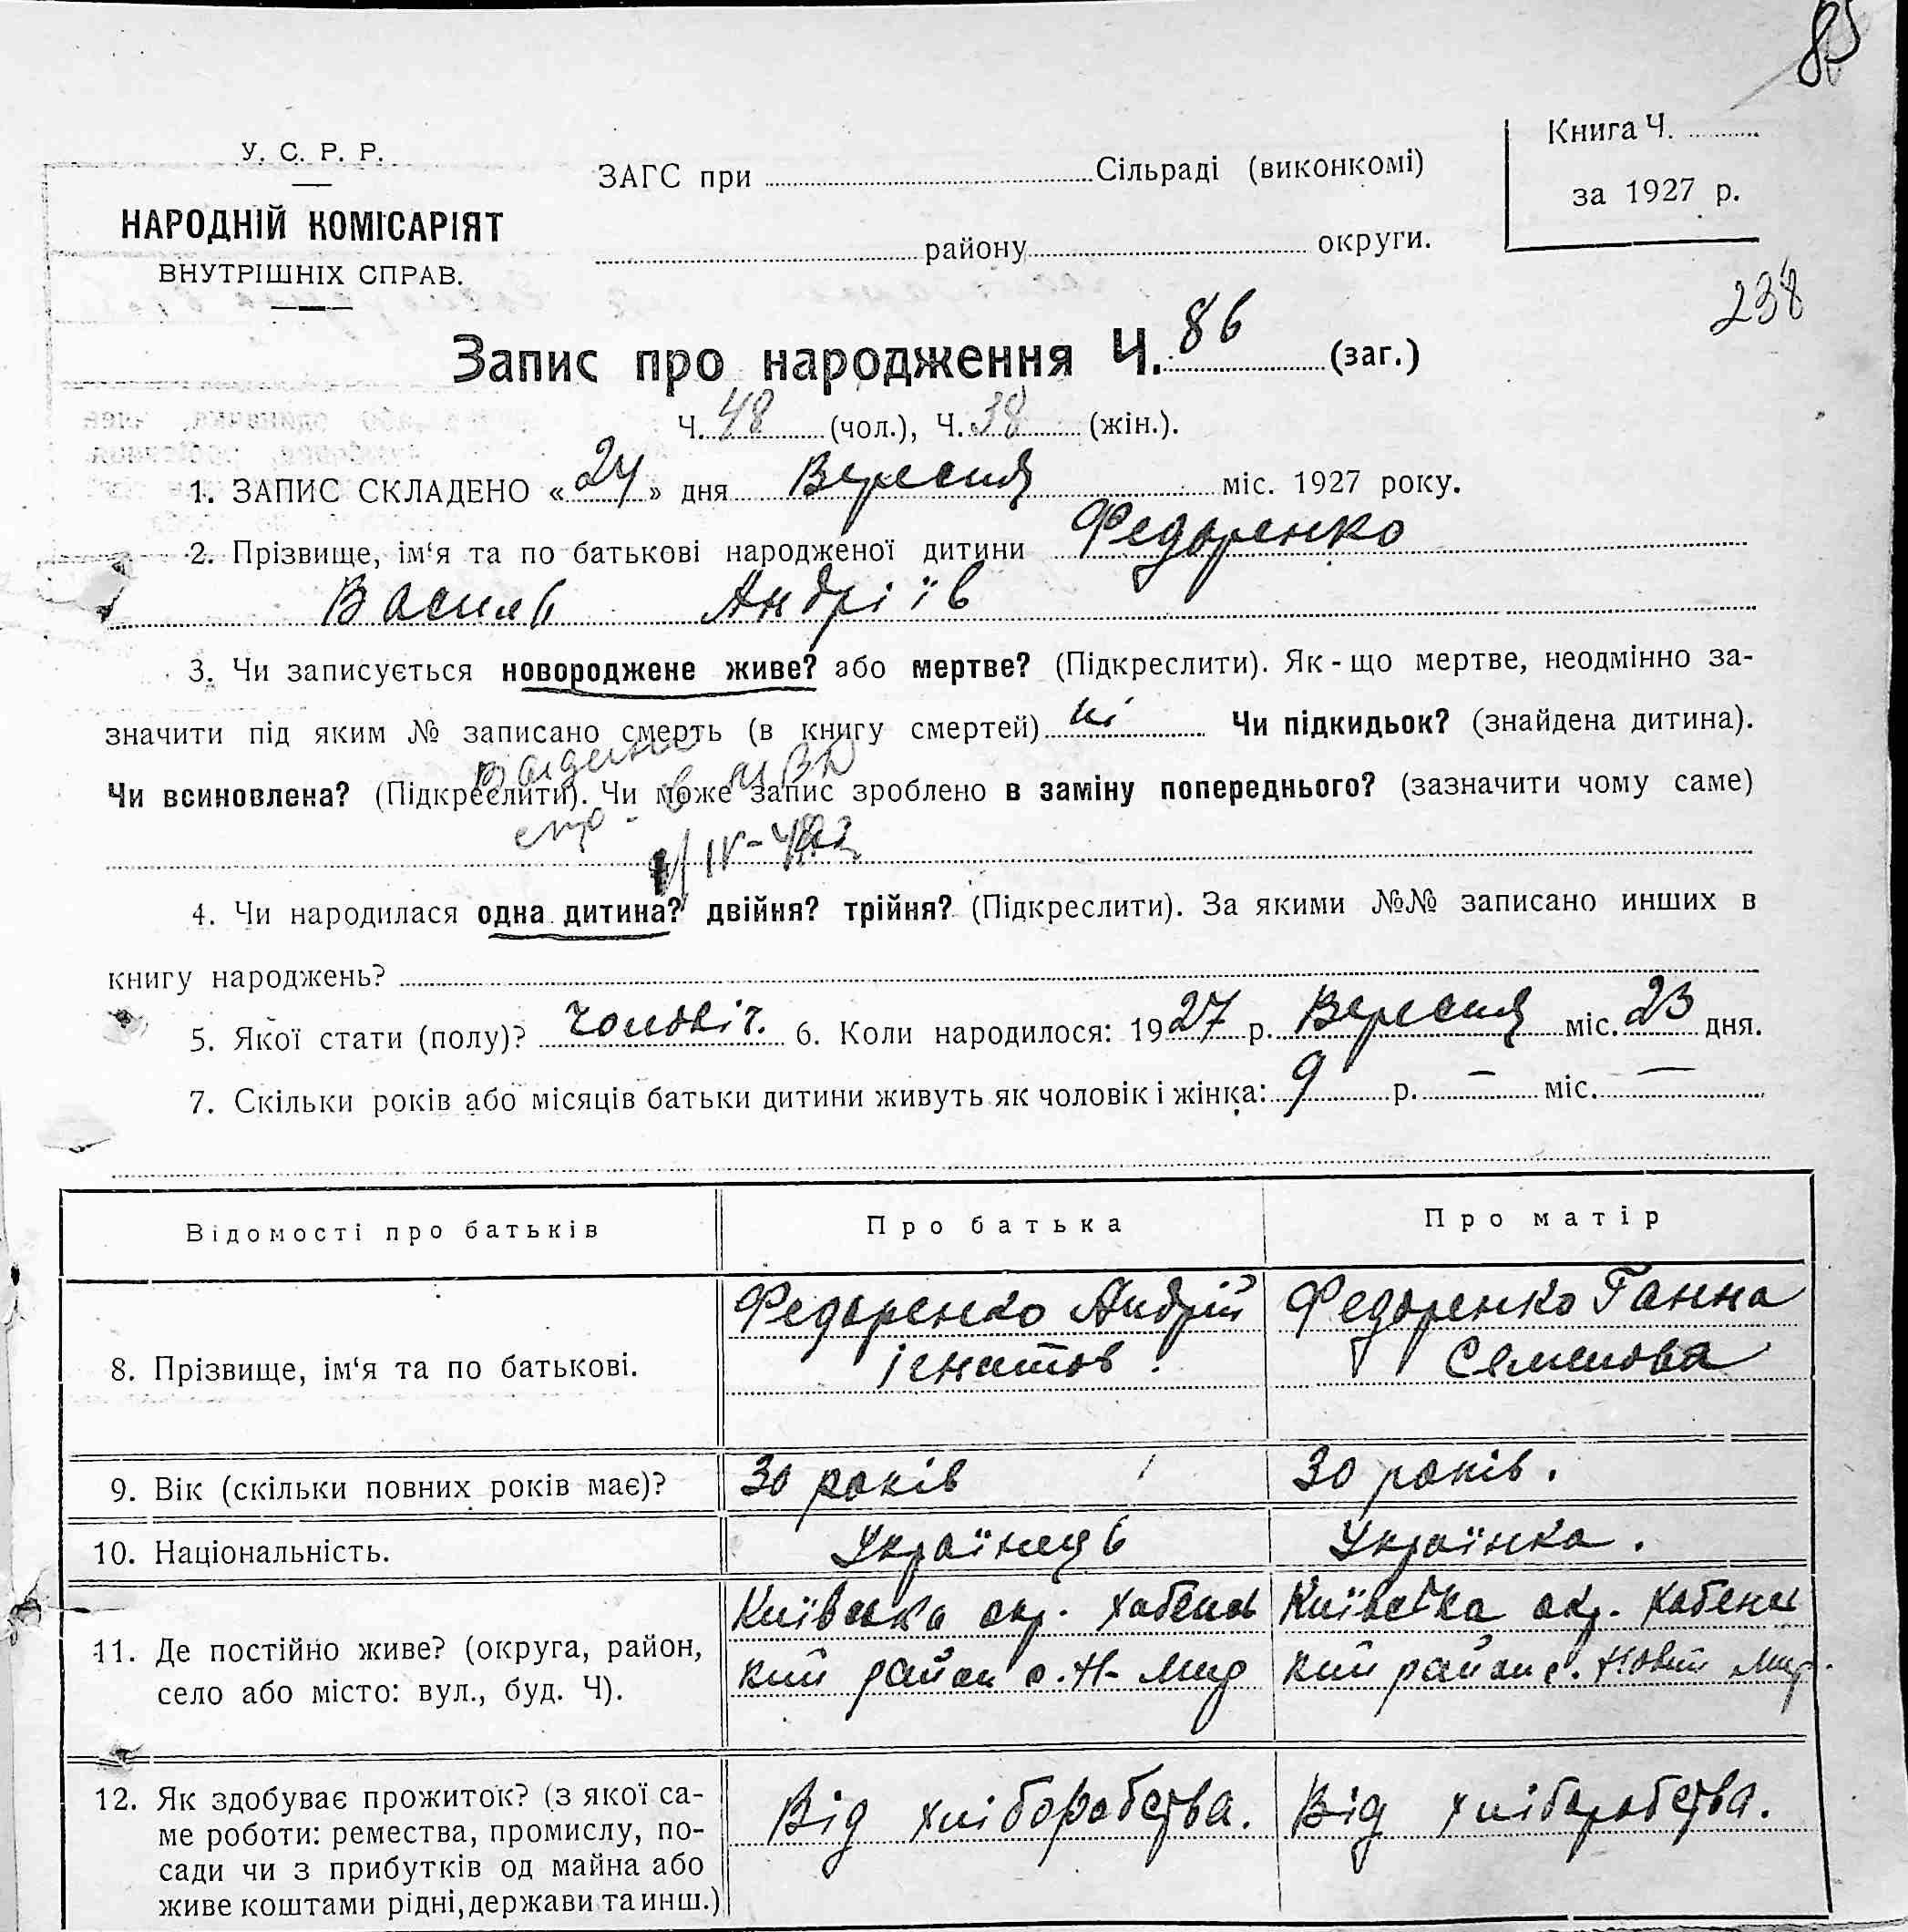 85
У. С. Р. Р.
НАРОДНІЙ КОМІСАРІЯТ
ВНУТРІШНІХ СПРАВ.
ЗАГС при Сільраді (виконкомі)
району округи.
Книга Ч.
за 1927 р.
238
Запис про народження Ч. 86 (заг.)
Ч. 48 (чол.), Ч. 38 (жін.).
1. ЗАПИС СКЛАДЕНО «24» дня Вересня міс. 1927 року.
2. Прізвище, ім‘я та по батькові народженої дитини Федоренко
Василь Андріїв
3. Чи записується новороджене живе? або мертве? (Підкреслити). Як-що мертве, неодмінно за-
значити під яким № записано смерть (в книгу смертей) ні Чи підкидьок? (знайдена дитина).
Чи всиновлена? (Підкреслити). Чи може запис зроблено в заміну попереднього? (зазначити чому саме)
4. Чи народилася одна дитина? двійня? трійня? (Підкреслити). За якими №№ записано инших в
книгу народжень?
5. Якої стати (полу)? чоловіч. 6. Коли народилося: 1927 р. Вересня міс. 23 дня.
7. Скільки років або місяців батьки дитини живуть як чоловік і жінка: 9 р. — міс. —
Відомості про батьків
Про батька
Про матір
8. Прізвище, ім‘я та по батькові.
Федоренко Андрій
Ігнатов.
Федоренко Ганна
Семенова
9. Вік (скільки повних років має)?
30 років
30 років.
10. Національність.
Українець
Українка.
11. Де постійно живе? (округа, район,
село або місто: вул., буд. Ч).
Київська окр. Хабенсь
кий район с. Н-Мир
Київська окр. Хабенсь
кий район с. Новий Мир.
12. Як здобуває прожиток? (з якої са-
ме роботи: ремества, промислу, по-
сади чи з прибутків од майна або
живе коштами рідні, держави та инш.)
Від хліборобства.
Від хліборобства.